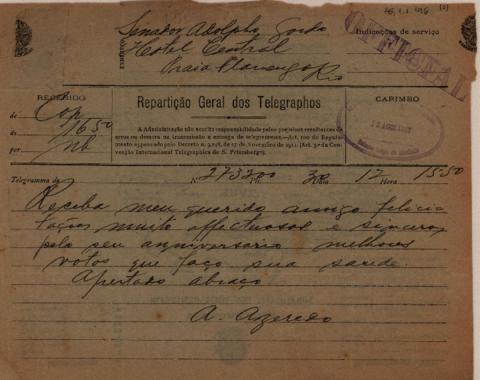 Senador Adolpho Gordo
Hotel Central
Praia Flamengo Rio
ENDEREÇO
Indicações de serviço
OFFICIAL
RECEBIDO
de Cop
ás 1650
por
Repartição Geral dos Telegraphos
A Administração não acceita responsabilidade pelos prejuizos resultantes de
erros ou demora na transmissão e entrega de telegrammas.—Art. 100 do Regula-
mento approvado pelo Decreto n. 9.148, de 27 de Novembro de 1911; (Art. 3º da Con-
venção Internacional Telegraphica de S. Petersburgo).
CARIMBO
Telegramma de N. 273200 Pls. 30 Data 12 Hora 1550
Receba meu querido amigo felici
tações muito affectuosas e sinceras
pelo seu anniversario melhores
votos que faço sua saude
Apertado abraço
A. Azeredo